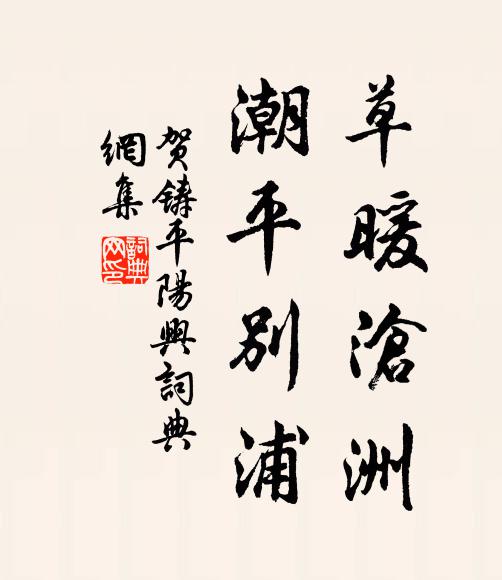 草暖滄洲
潮平別浦
賀鑄平陽興詞典
網集
詞典網印